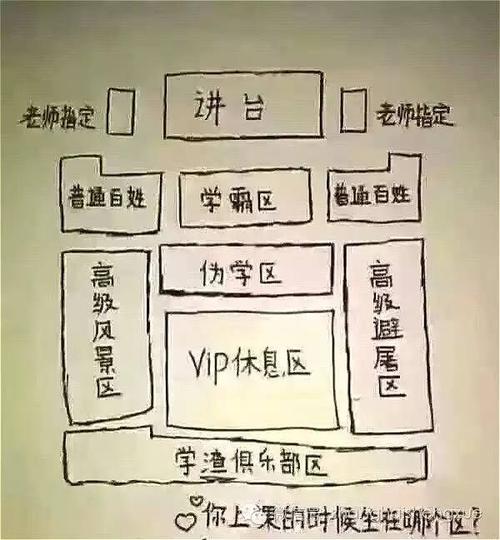 讲台
老师指定
老师指定
普通百姓
学霸区
普通百姓
伪学区
高级风景区
Vip休息区
高级避尾区
学渣俱乐部区
你上课的时候坐在哪个区?